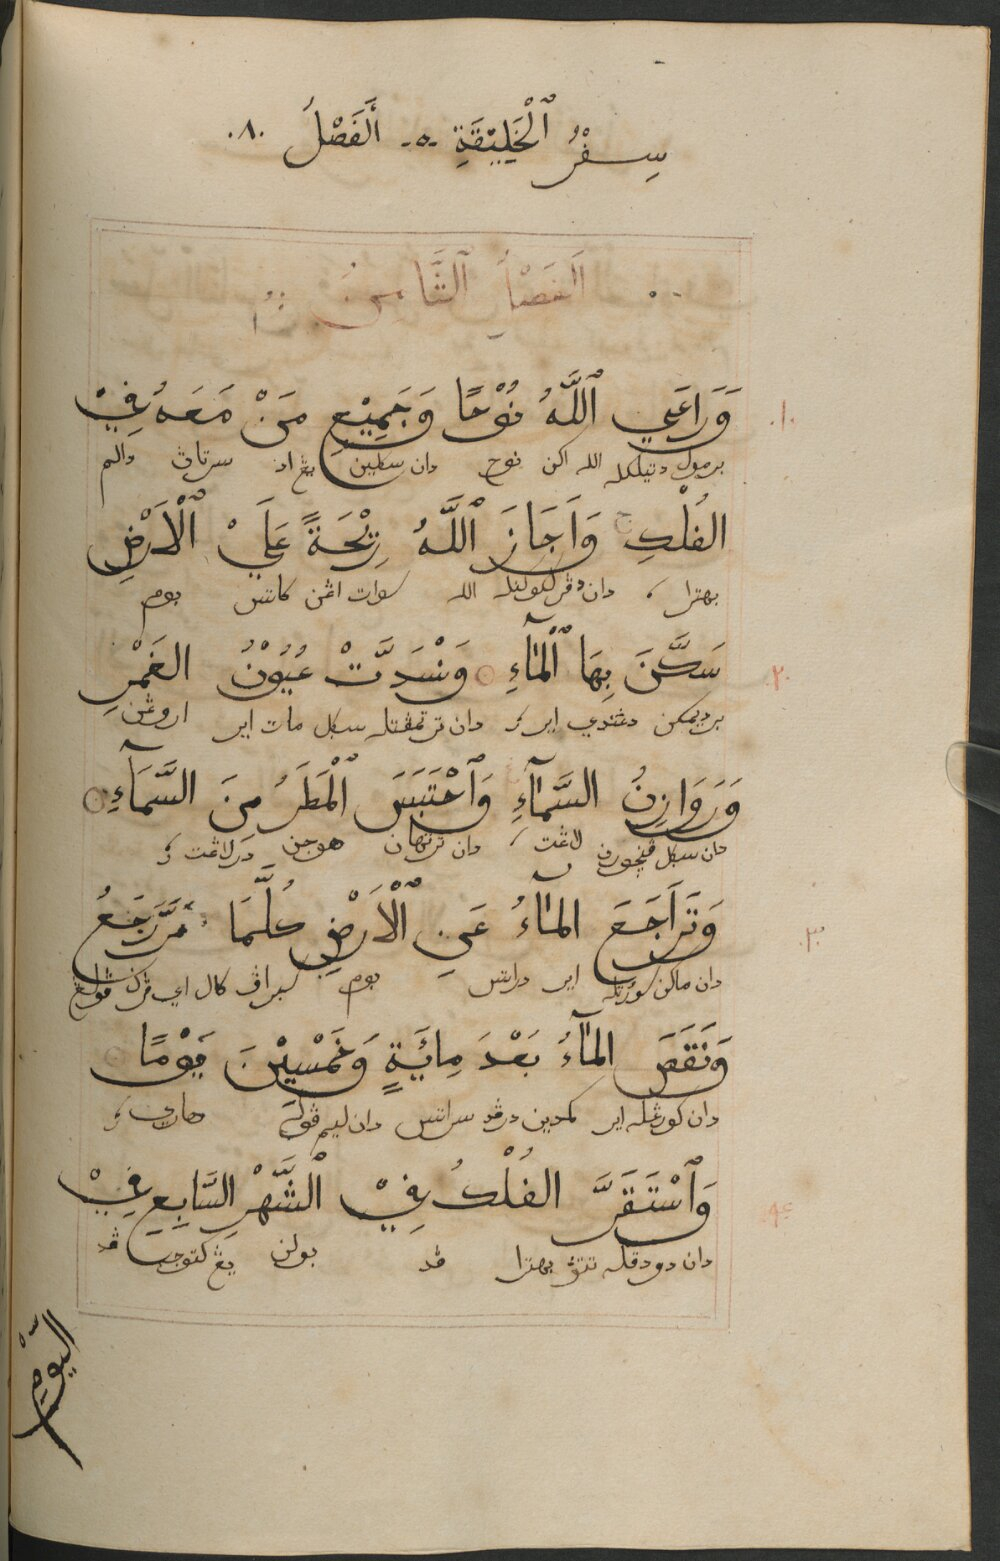 سِفْرُ ٱلْخَلِيْقَةِ ۔ه۔ أَلْفَصْلُ .٨.
الفصل ٱلثَّامِنُ
.١. وَرَاعَي ٱللَّهُ نُوْحًا وَجَمِيْعِ مَنْ مَعَهُ فِيْ
الله اكن نوح دان سكلين يڠ اد سرتاڽ دالم
الفُلْكِ وَاَجَازَ ٱللَّهُ رِيْحَةً عَلَيْ ٱلْاَرْضِ
بهترا، دان الله سوات اڠن كاتس بوم
.٢. سَكَّنَ بِهَا ٱلْمَآءِ وَنْسَدَّتْ عُيُوْنُ الغَمْرِ
اير، دان سكل مات اير
وَرَوَازِنُ السَّمَآءِ وَٱحْتَبَسَ ٱلْمَطَرُ مِنَ السَّمَآءِ
دان سكل لاڠت، دان هوجن در لاڠت،
.٣. وَتَرَاجَعَ المَآءُ عَنِ ٱلْاَرْضِ كُلَّمَا مَرَّ رَجَعُ
دان ماكن اير دراتس بوم
وَنَقَصَ المَآءُ بَعْدَ مِائَيَةٍ وَخَمْسِيْنَ يَوْمًا
دان كورڠله اير كمدين درڤد سراتس دان ليم ڤوله هاري،
.٤. وَٱسْتَقَرَّ الفُلْكُ فِيْ ٱلْشَّهْرِ السَّابِعِ فِيْ
دان دودقله بهترا ڤد بولن يڠ كتوجه ڤد
اليَوْمِ